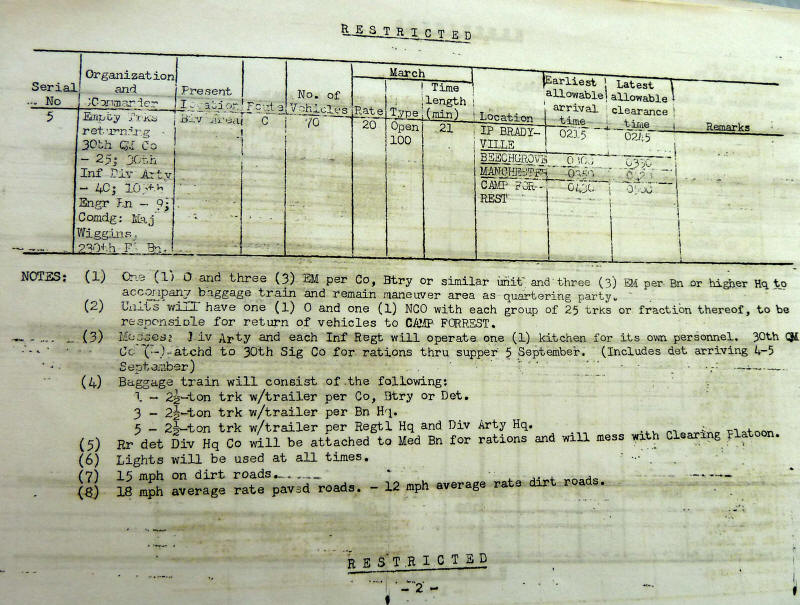 RESTRICTED
Serial No
Organization and Commander
Present Location
Route
No. of Vehicles
March
Rate
Type
Time length (min)
Location
Earliest allowable arrival time
Latest allowable clearance time
Remarks
5
Empty Trks
returning
30th QM Co
- 25; 30th
Inf Div Arty
- 40; 105th
Engr Bn - 9;
Comdg: Maj
Wiggins,
230th FA Bn.
Div Area
C
70
20
Open
100
21
IP BRADY-
VILLE
0215
0245
BEECHGROVE
0300
0330
MANCHESTER
0350
0420
CAMP FOR-
REST
0430
0500
NOTES: (1) One (1) O and three (3) EM per Co, Btry or similar unit and three (3) EM per Bn or higher Hq to
accompany baggage train and remain maneuver area as quartering party.
(2) Units will have one (1) O and one (1) NCO with each group of 25 trks or fraction thereof, to be
responsible for return of vehicles to CAMP FORREST.
(3) Messes: Div Arty and each Inf Regt will operate one (1) kitchen for its own personnel. 30th QM
Co (-) atchd to 30th Sig Co for rations thru supper 5 September. (Includes det arriving 4-5
September)
(4) Baggage train will consist of the following:
1 - 2½-ton trk w/trailer per Co, Btry or Det.
3 - 2½-ton trk w/trailer per Bn Hq.
5 - 2½-ton trk w/trailer per Regtl Hq and Div Arty Hq.
(5) Rr det Div Hq Co will be attached to Med Bn for rations and will mess with Clearing Platoon.
(6) Lights will be used at all times.
(7) 15 mph on dirt roads.
(8) 18 mph average rate paved roads. - 12 mph average rate dirt roads.
RESTRICTED
- 2 -